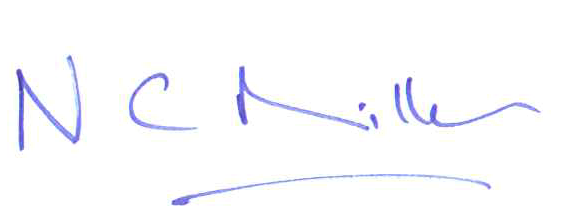 N C Miller